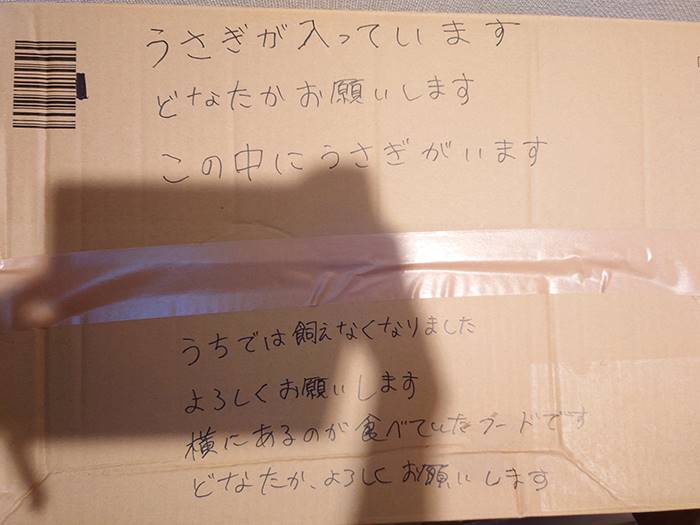 うさぎが入っています
どなたかお願いします
この中にうさぎがいます
うちでは飼えなくなりました
よろしくお願いします
横にあるのが食べていたフードです
どなたか、よろしくお願いします